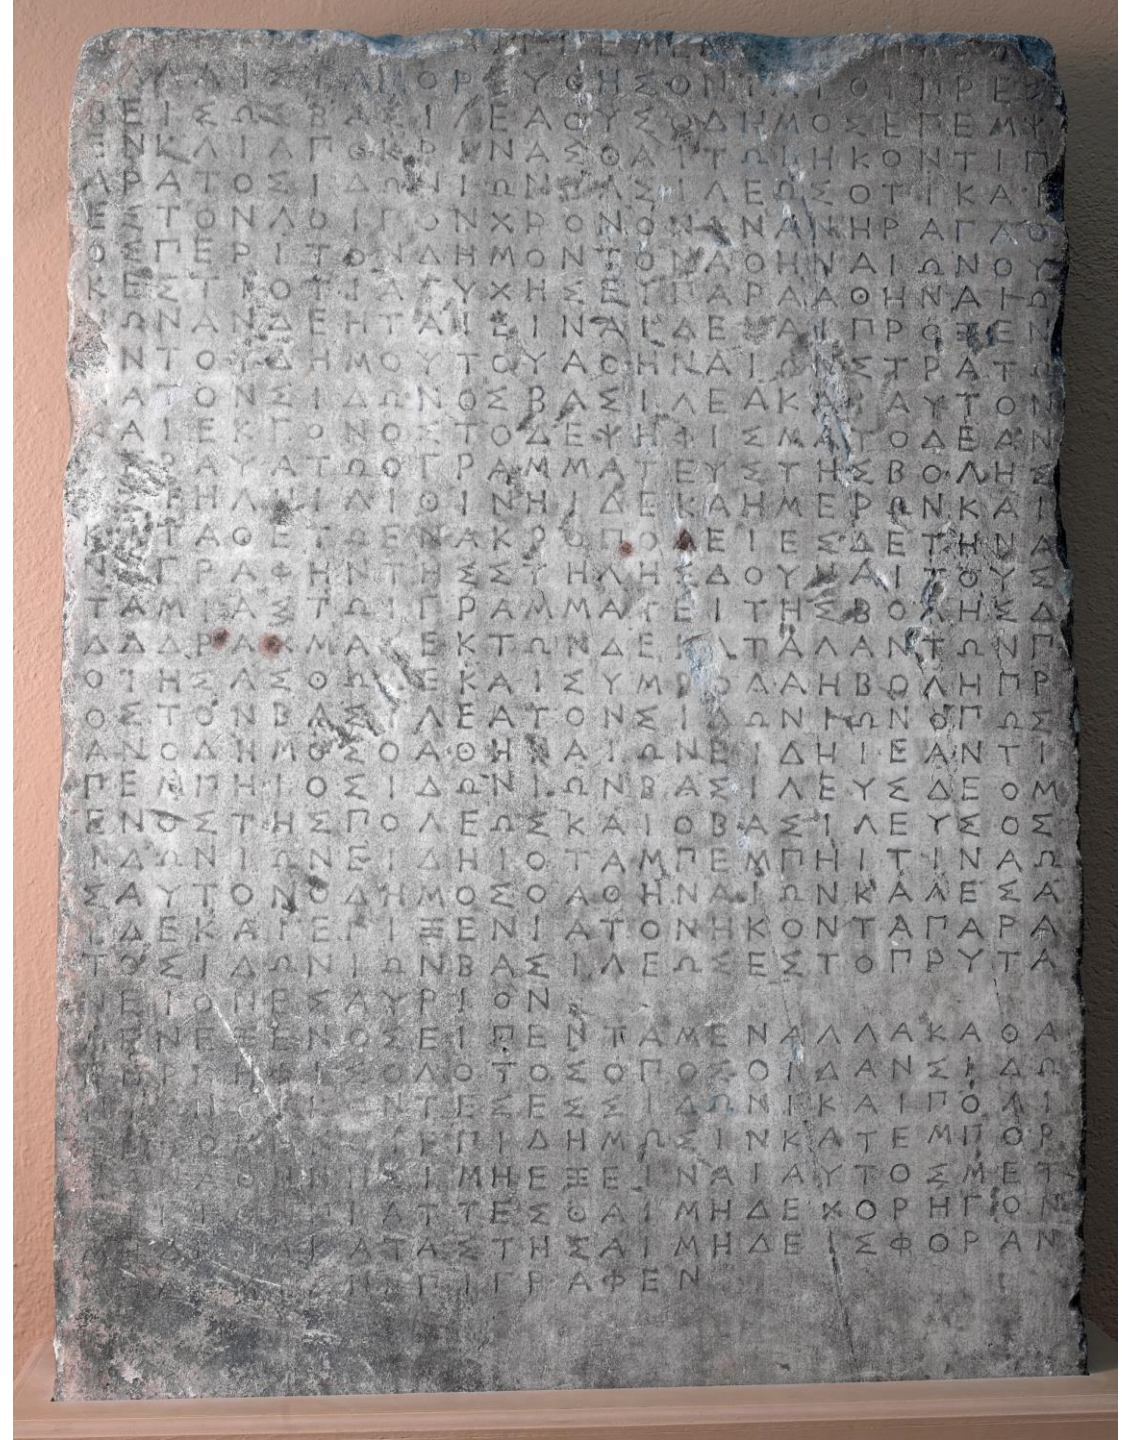 ΕΜΕ
ΚΑΛΛΙΣΤΑΠΟΡΕΥΘΗΣΟΝΤΑΙΟΙΠΡΕΣ
ΒΕΙΣΩΣΒΑΣΙΛΕΑΟΥΣΟΔΗΜΟΣΕΠΕΜΨ
ΕΝΚΑΙΑΠΟΚΡΙΝΑΣΘΑΙΤΩΙΗΚΟΝΤΙΠ
ΑΡΑΤΟΣΙΔΩΝΙΩΝΒΑΣΙΛΕΩΣΟΤΙΚΑΙ
ΕΣΤΟΝΛΟΙΠΟΝΧΡΟΝΟΝΩΝΑΝΗΡΑΓΑΘ
ΟΣΠΕΡΙΤΟΝΔΗΜΟΝΤΟΝΑΘΗΝΑΙΩΝΟΥ
ΚΕΣΤΙΟΤΙΑΤΥΧΗΣΕΙΠΑΡΑΑΘΗΝΑΙΩ
ΝΩΝΑΝΔΕΗΤΑΙΕΙΝΑΙΔΕΚΑΙΠΡΟΞΕΝ
ΟΝΤΟΥΔΗΜΟΥΤΟΥΑΘΗΝΑΙΩΝΣΤΡΑΤΩ
ΝΑΤΟΝΣΙΔΩΝΟΣΒΑΣΙΛΕΑΚΑΙΑΥΤΟΝ
ΚΑΙΕΚΓΟΝΟΣΤΟΔΕΨΗΦΙΣΜΑΤΟΔΕΑΝ
ΑΓΡΑΨΑΤΩΟΓΡΑΜΜΑΤΕΥΣΤΗΣΒΟΛΗΣ
ΕΣΤΗΛΗΙΛΙΘΙΝΗΙΔΕΚΑΗΜΕΡΩΝΚΑΙ
ΚΑΤΑΘΕΤΩΕΝΑΚΡΟΠΟΛΕΙΕΣΔΕΤΗΝΑ
ΝΑΓΡΑΦΗΝΤΗΣΣΤΗΛΗΣΔΟΥΝΑΙΤΟΥΣ
ΤΑΜΙΑΣΤΩΙΓΡΑΜΜΑΤΕΙΤΗΣΒΟΛΗΣΔ
ΔΔΔΡΑΧΜΑΣΕΚΤΩΝΔΕΚΑΤΑΛΑΝΤΩΝΠ
ΟΙΗΣΑΣΘΩΔΕΚΑΙΣΥΜΒΟΛΑΗΒΟΛΗΠΡ
ΟΣΤΟΝΒΑΣΙΛΕΑΤΟΝΣΙΔΩΝΙΩΝΟΠΩΣ
ΑΝΟΔΗΜΟΣΟΑΘΗΝΑΙΩΝΕΙΔΗΙΕΑΝΤΙ
ΠΕΜΠΗΙΟΣΙΔΩΝΙΩΝΒΑΣΙΛΕΥΣΔΕΟΜ
ΕΝΟΣΤΗΣΠΟΛΕΩΣΚΑΙΟΒΑΣΙΛΕΥΣΟΣ
ΙΔΩΝΙΩΝΕΙΔΗΙΟΤΑΜΠΕΜΠΗΙΤΙΝΑΩ
ΣΑΥΤΟΝΟΔΗΜΟΣΟΑΘΗΝΑΙΩΝΚΑΛΕΣΑ
ΙΔΕΚΑΙΕΠΙΞΕΝΙΑΤΟΝΗΚΟΝΤΑΠΑΡΑ
ΤΟΣΙΔΩΝΙΩΝΒΑΣΙΛΕΩΣΕΣΤΟΠΡΥΤΑ
ΝΕΙΟΝΕΣΑΥΡΙΟΝ
ΜΕΝΕΞΕΝΟΣΕΙΠΕΝΤΑΜΕΝΑΛΛΑΚΑΘΑ
ΠΕΡΚΗΦΙΣΟΔΟΤΟΣΟΠΟΣΟΙΔΑΝΣΙΔΩ
ΝΙΩΝΟΙΚΟΝΤΕΣΕΣΣΙΔΩΝΙΚΑΙΠΟΛΙ
ΤΕΥΟΜΕΝΟΙΕΠΙΔΗΜΩΣΙΝΚΑΤΕΜΠΟΡ
ΙΑΝΑΘΗΝΗΣΙΜΗΕΞΕΙΝΑΙΑΥΤΟΣΜΕΤ
ΟΙΚΙΟΝΠΡΑΤΤΕΣΘΑΙΜΗΔΕΧΟΡΗΓΟΝ
ΜΗΔΕΝΑΚΑΤΑΣΤΗΣΑΙΜΗΔΕΙΣΦΟΡΑΝ
ΜΗΔΕΜΙΑΝΕΠΙΓΡΑΦΕΝ